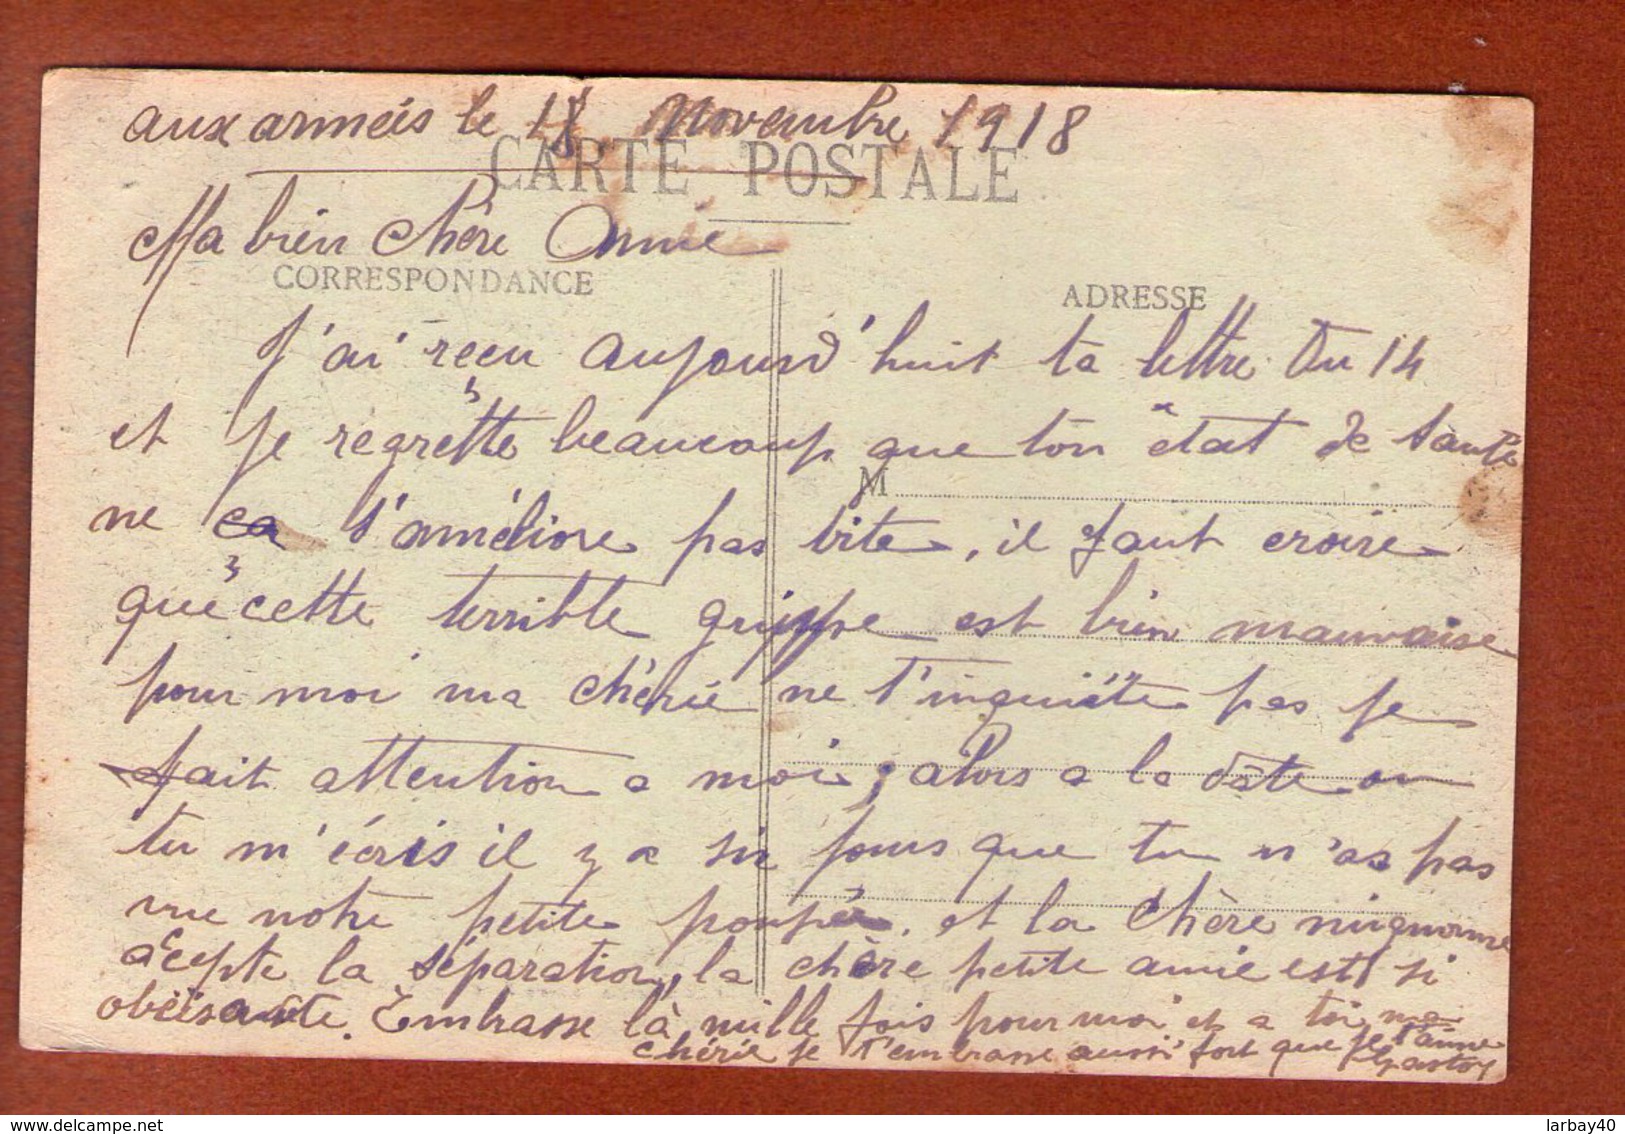 aux armées le 18 Novembre 1918
CARTE POSTALE
Ma bien chère Annie
CORRESPONDANCE
ADRESSE
J'ai reçu aujourd'huit ta lettre du 14
et je regrètte beaucoup que ton état de santé
M
ne ça s'améliore pas vite, il faut croire
que cette terrible grippe est bien mauvaise
pour moi ma chérie ne t'inquiète pas je
fait attention a moi, alors a la date ou
tu m'écris il y a six jours que tu n'as pas
vue notre petite poupée. et la chère mignonne
acepte la séparation, la chère petite amie est si
obéïsante. Embrasse là mille fois pour moi et a toi ma
chérie je t'embrasse aussi fort que je t'aime
Gaston
delcampe.net
larbay40